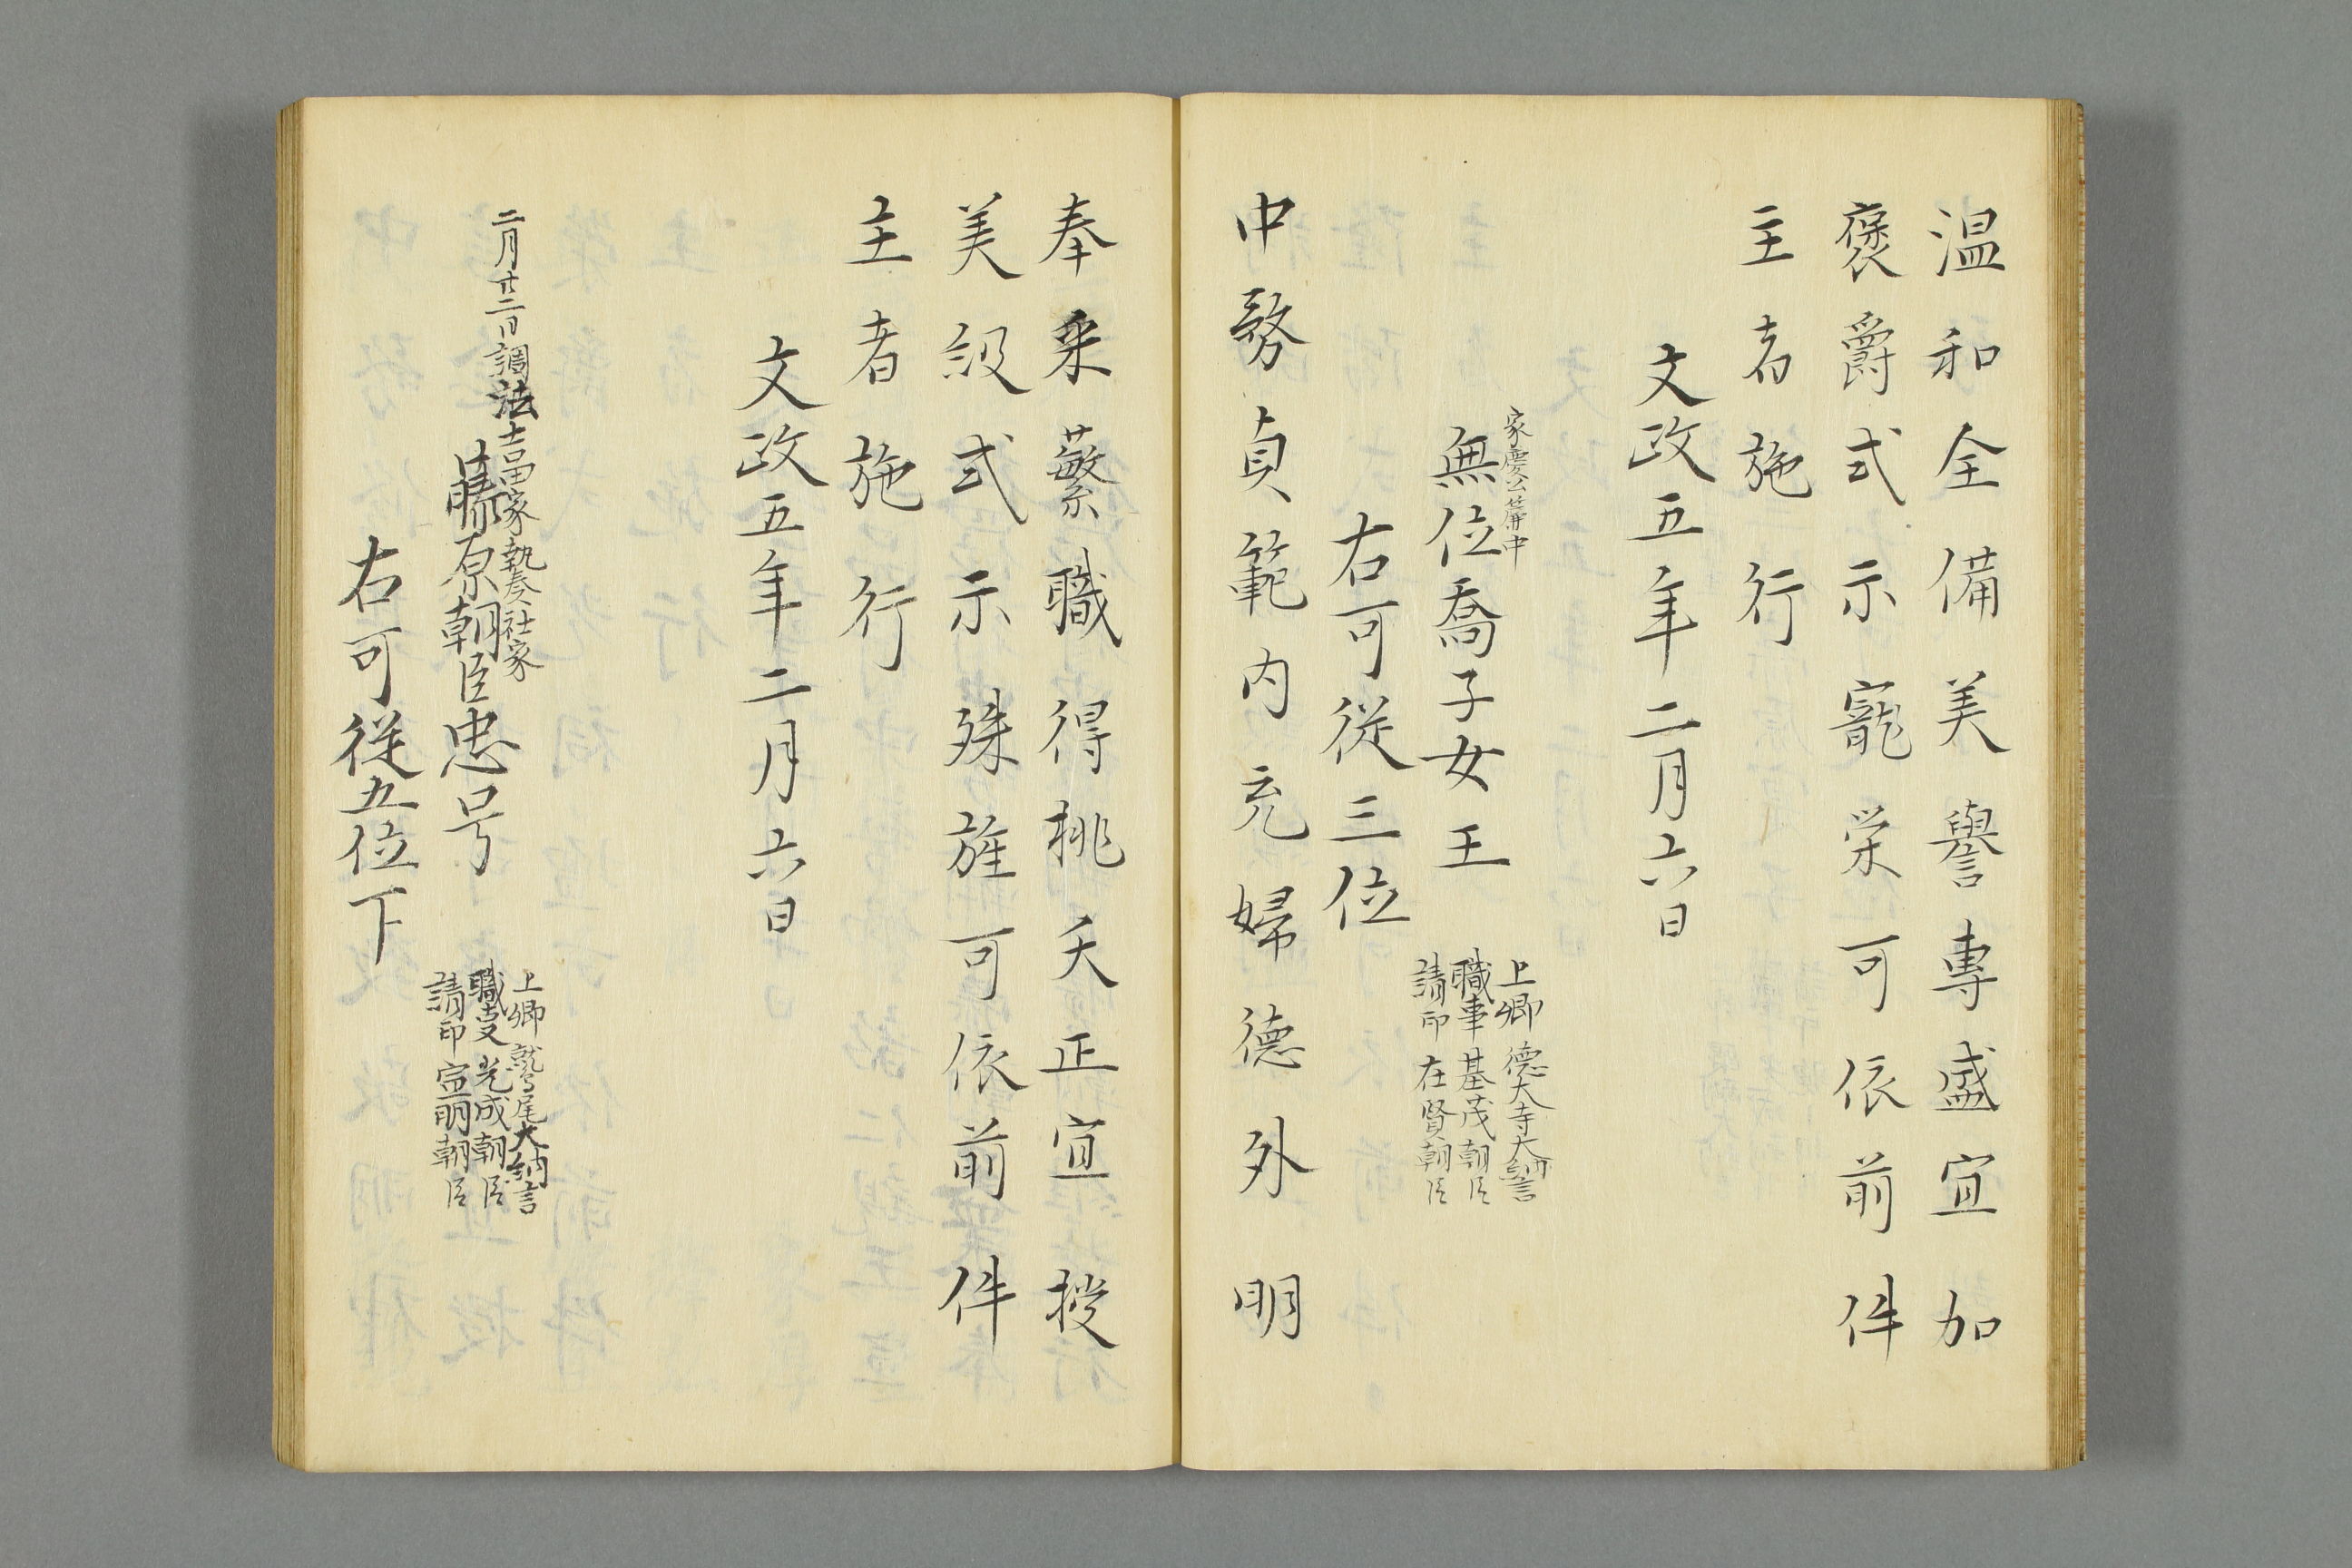 温和全備美譽專盛宜加
褒爵式示寵栄可依前件
主者施行
文政五年二月六日
家慶公簾中
無位喬子女王
上卿 德大寺大納言
職事 基茂朝臣
請印 在賢朝臣
右可從三位
中務貞範内充婦德外明
奉采蘩職得桃夭正宜授
美級式示殊旌可依前件
主者施行
文政五年二月六日
二月廿二日調 吉田家執奏社家
藤原朝臣忠号
上卿 鷲尾大納言
職事 光成朝臣
請印 宣明朝臣
右可従五位下